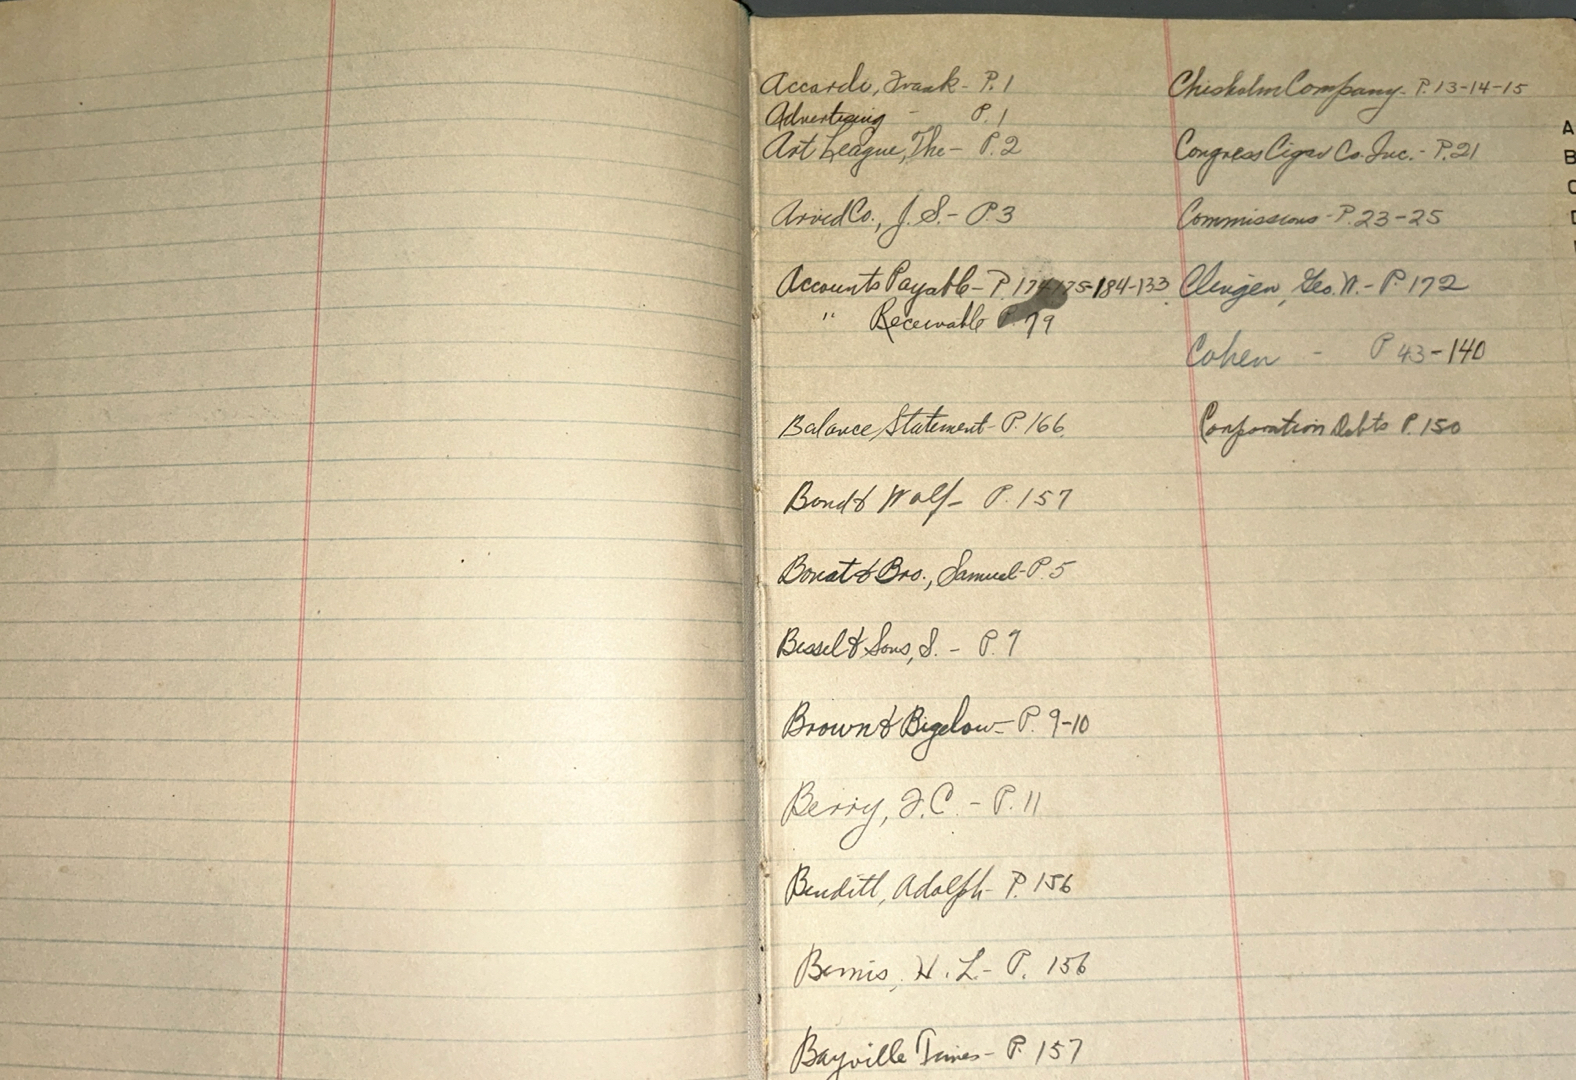 Accardi, Frank - P. 1
Advertising - P. 1
Art League, The - P. 2
Arvid Co., J. S. - P. 3
Accounts Payable - P. 174-175-184-133
" Receivable P. 79
Balance Statement - P. 166
Bond & Wolf - P. 157
Bonat & Bro., Samuel - P. 5
Bessel & Sons, S. - P. 7
Brown & Bigelow - P. 9-10
Berry, F. C. - P. 11
Benditt, Adolph - P. 156
Bemis, H. L. - P. 156
Bayville Times - P. 157
Chisholm Company - P. 13-14-15
Congress Cigar Co. Inc. - P. 21
Commissions - P. 23-25
Clingen, Geo. W. - P. 172
Cohen - P 43-140
Corporation Debts P. 150
A
B
C
D